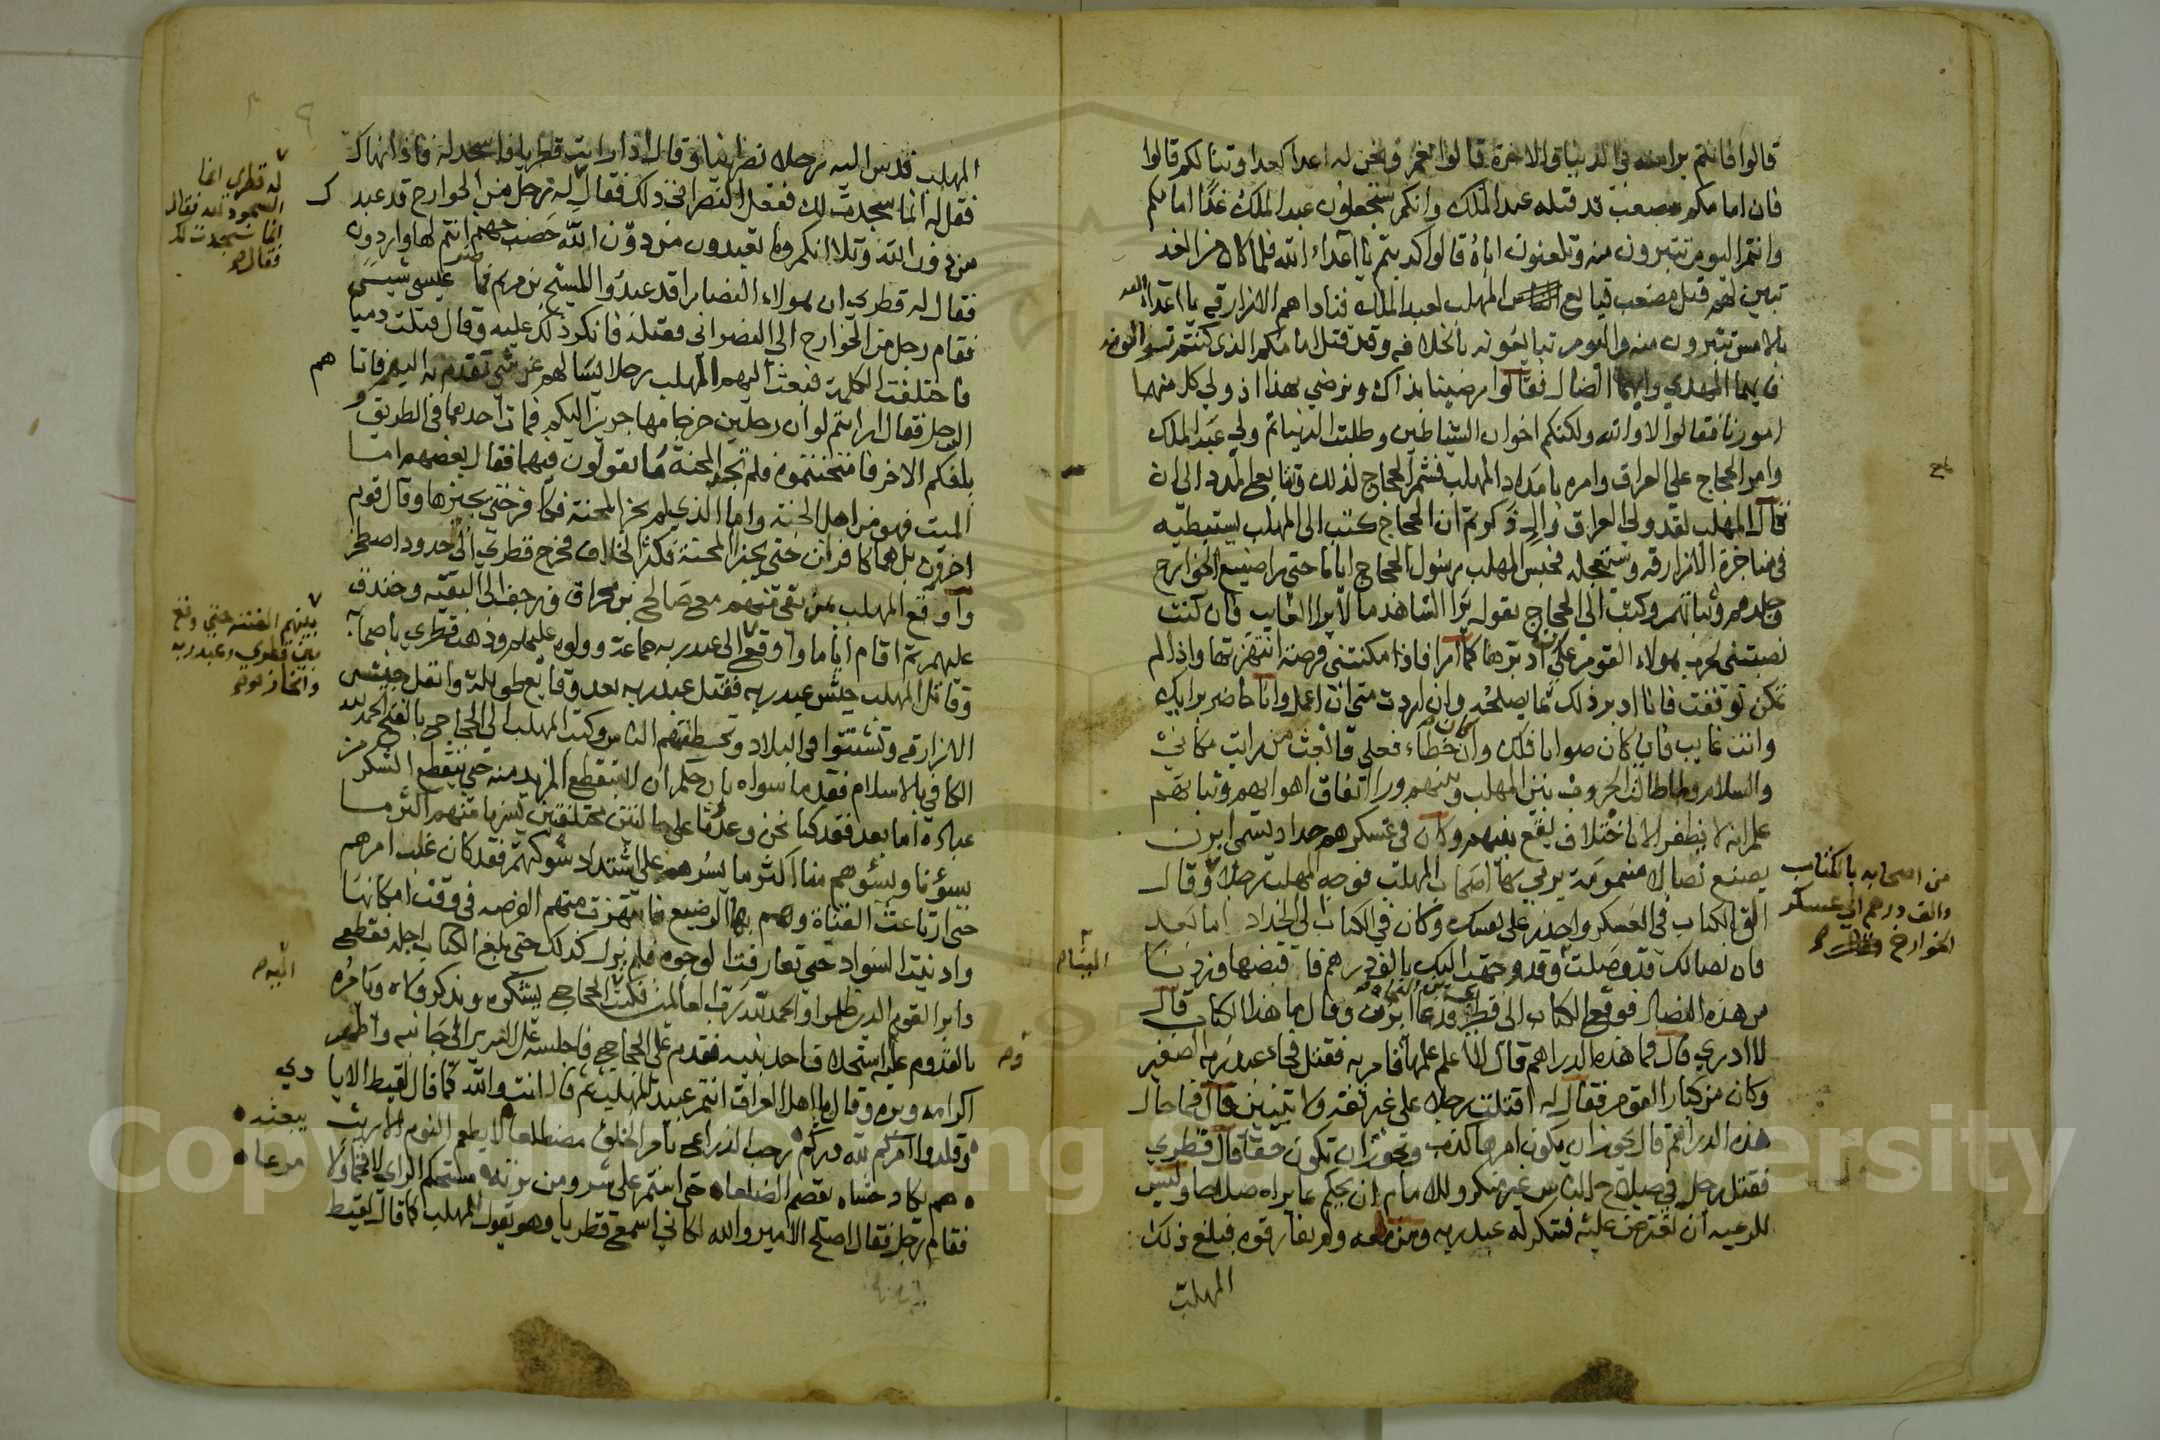 قالوا فانتم براء منه في الدنيا والاخرة قالوا نعم ونحن له اعداء كعداوتنا لكم قالوا
فان امامكم مصعب قد قتله عبد الملك وانكم ستجعلون عبد الملك غدًا امامكم
وانتم اليوم تتبرون منه وتلعنون اباهُ قالوا كذبتم يا اعداء الله فلما كان من الغد
تبين لهم قتل مصعب فبايع المهلب لعبد الملك فناداهم الازارقه يا اعداء الله
بالامس تتبرون منه واليوم تبايعونه بالخلافه وقد قتل امامكم الذي كنتم تولونه
فايهما المهدي وايهما الضال فقالوا رضينا بذاك ونرضي بهذا اذ ولي كل منهما
امورنا فقالوا لا والله ولكنكم اخوان الشياطين وطلبت الدنيا ثم ولي عبد الملك
وامر الحجاج علي العراق وامره بامداد المهلب فشمر الحجاج لذلك وتتابع المدد الي ان
قال المهلب لقد ولي العراق والٍ ذكر ثم ان الحجاج كتب الي المهلب يستبطيه
في مناجزة الازارقه ويستعجله فحبس المهلب رسول الحجاج اياما حتي راى صنيع الخوارج
وجلدهم وثباتهم وكتب الى الحجاج يقول يرا الشاهد ما لا يرا الغايب فان كنت
نصبتني لحرب هولاء القوم على ان ادبرها كما ارا فاذا امكنتني فرصة انتهزتها واذا لم
تمكن توقفت فانا ادبر ذلك بما يصلحه وان اردت مني ان اعمل وانا حاضر برايك
وانت غايب فان كان صوابا فلك وان كان خطاء فعلي فابعث من رايت مكاني
والسلام ولما طالت الحروب بين المهلب وبينهم ورا اتفاق اهوايهم وثباتهم
علم انه لا يظفر الا باختلاف يقع بينهم وكان في عسكرهم حداد يسمى ابزن
يصنع نصالا مسمومة يرمي بها اصحاب المهلب فوجه المهلب رجلا وقال
من اصحابه بالكتاب
والف درهم الي عسكر
الخوارج
الق الكتاب في العسكر واحذر على نفسك وكان في الكتاب الى الحداد اما بعد
فان نصالك قد وصلت وقد وجهت اليك بالف درهم فاقبضها وزدنا
من هذه النصال فوقع الكتاب الى قطري فدعا ابزن وقال ما هذا الكتاب قال
لا ادري قال فما هذه الدراهم قال لا اعلم علمها فامر به فقتل فجاء عبد ربه الصغير
وكان من كبار القوم فقال له اقتلت رجلا على غير ثقة ولا تبين قال فما حال
هذه الدراهم قال يجوز ان يكون امرها كذب ويجوز ان تكون حقا قال قطري
فقتل رجل في صلاح الناس غير منكر وللامام ان يحكم بما يراه صلاحا وليس
للرعيه ان تعترض عليه فتنكر له عبد ربه ومن معه ولم يفارقوه فبلغ ذلك
المهلب
المهلب فدس اليه رجلا نصرانيا وقال اذا رايت قطريا فاسجد له فاذا نهاك
فقل له انما سجدت لك ففعل النصراني ذلك فقال له رجل من الخوارج قد عبدك
له قطري انما
السجود لله فقال
انما سجدت لك
فقال
من دون الله وتلا انكم وما تعبدون من دون الله حصب جهنم انتم لها واردون
فقال له قطري ان هولاء النصارا قد عبدوا المسيح بن مريم فما ضر عيسى شيئ
فقام رجل من الخوارج الي النصراني فقتله فانكر ذلك عليه وقال قتلت دميا
فاختلفت الكلمة فبعث اليهم المهلب رجلا يسالهم عن شي تقدم به اليهم فاتاهم
الرجل فقال ارايتم لو ان رجلين خرجا مهاجرين اليكم فمات احدهما في الطريق و
بلغكم الاخر فامتحنتموه فلم يجز المحنة ما تقولون فيهما فقال بعضهم اما
الميت فهو من اهل الجنة واما الذي لم يجز المحنة فكافر حتى يجيزها وقال قوم
اخرون بل هما كافران حتى يجيزا المحنة فكثر الخلاف فخرج قطري الى حدود اصطخر
واوقع المهلب بمن بقي منهم مع صالح بن مخراق فرجف الى البقيه وخندق
عليهم ثم اقام اياما واوقع الى عبد ربه جماعة وولوه عليهم وذهب قطري باصحابه
بينهم الفتنه حتي وقع
بين قطري وعبد ربه
وانحاز
وقاتل المهلب جيش عبد ربه فقتل عبد ربه بعد وقايع طويلة وانفل جيش
الازارقه وتشتتوا في البلاد وتخطفهم الناس وكتب المهلب الى الحجاج بالفتح الحمد لله
الكافي بالاسلام فقد ما سواه بان حكم ان لا ينقطع المزيد منه حتي ينقطع الشكر من
عباده اما بعد فقد كنا نحن وعدونا على حالتين مختلفتين يسرنا منهم اكثر مما
يسوءنا ويسوهم منا اكثر ما يسرهم على اشتداد شوكتهم فقد كان غلب امرهم
حتى ارتاعت الفتاة ونوم بها الرضيع فانتهزت منهم الفرصه في وقت امكانها
وادنيت السواد حتى تعارفت الوجوه فلم نزل كذلك حتى بلغ الكتاب اجله فقطع
دابر القوم الذين ظلموا والحمد لله رب العالمين فكتب الحجاج يشكره ويذكر ويامره
بالقدوم عليه فقدم على الحجاج فاجلسه على السرير الى جانبه واظهر
اكرامه وبره وقال يا اهل العراق انتم عبيد المهلب ثم قال انت والله كما قال لقيط الايادي
وقلدوا امركم لله دركم رحب الذراع بامر الحرب مضطلعا لا يطعم النوم الا ريث يبعثه
هم يكاد حشاه يقصم الضلعا حتى استمر على شزر مريرته مستحكم الراي لا قحما ولا ضرعا
فقام رجل فقال اصلح الله الامير والله لكاني اسمع قطريا وهو يقول المهلب كما قال لقيط
Copyright © King Saud University